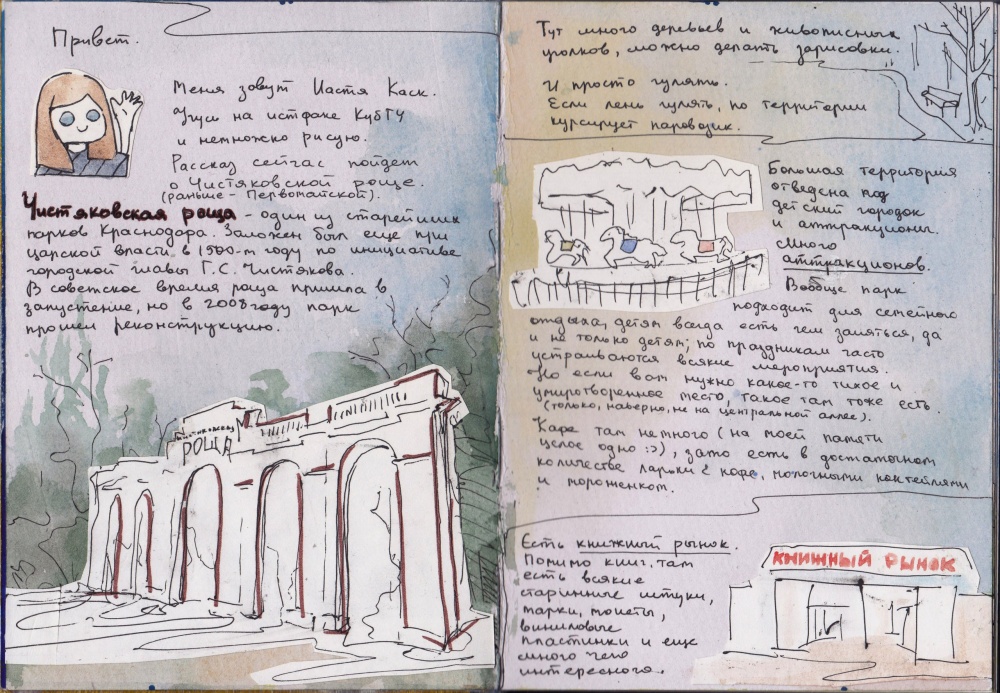 Привет.
Меня зовут Настя Каск.
Учусь на истфаке КубГУ
и немножко рисую.
Рассказ сейчас пойдет
о Чистяковской роще.
(раньше - Первомайской).
Чистяковская роща - один из старейших
парков Краснодара. Заложен был еще при
царской власти в 1900-м году по инициативе
городской главы Г.С. Чистякова.
В советское время роща пришла в
запустение, но в 2008 году парк
прошел реконструкцию.
Чистяковская
РОЩА
Тут много деревьев и живописных
уголков, можно делать зарисовки.
И просто гулять.
Если лень гулять, по территории
курсирует паровозик.
Большая территория
отведена под
детский городок
и аттракционы.
Много
аттракционов.
Вообще парк
подходит для семейного
отдыха, детям всегда есть чем заняться, да
и не только детям, по праздникам часто
устраиваются всякие мероприятия.
Но если вам нужно какое-то тихое и
умиротворенное место, такое там тоже есть.
(только, наверно, не на центральной аллее).
Кафе там немного (на моей памяти
целое одно :>), зато есть в достаточном
количестве ларьки с кофе, молочными коктейлями
и мороженком.
Есть книжный рынок.
Помимо книг, там
есть всякие
старинные штуки,
марки, монеты,
виниловые
пластинки и еще
много чего
интересного.
КНИЖНЫЙ РЫНОК